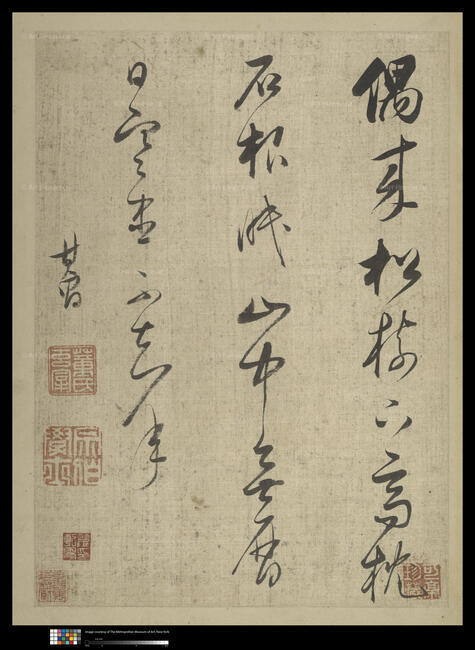 偶來松樹下高枕
石根眠山中無曆
日寒盡不知年
其昌
董氏玄宰
Image courtesy of The Metropolitan Museum of Art, New York